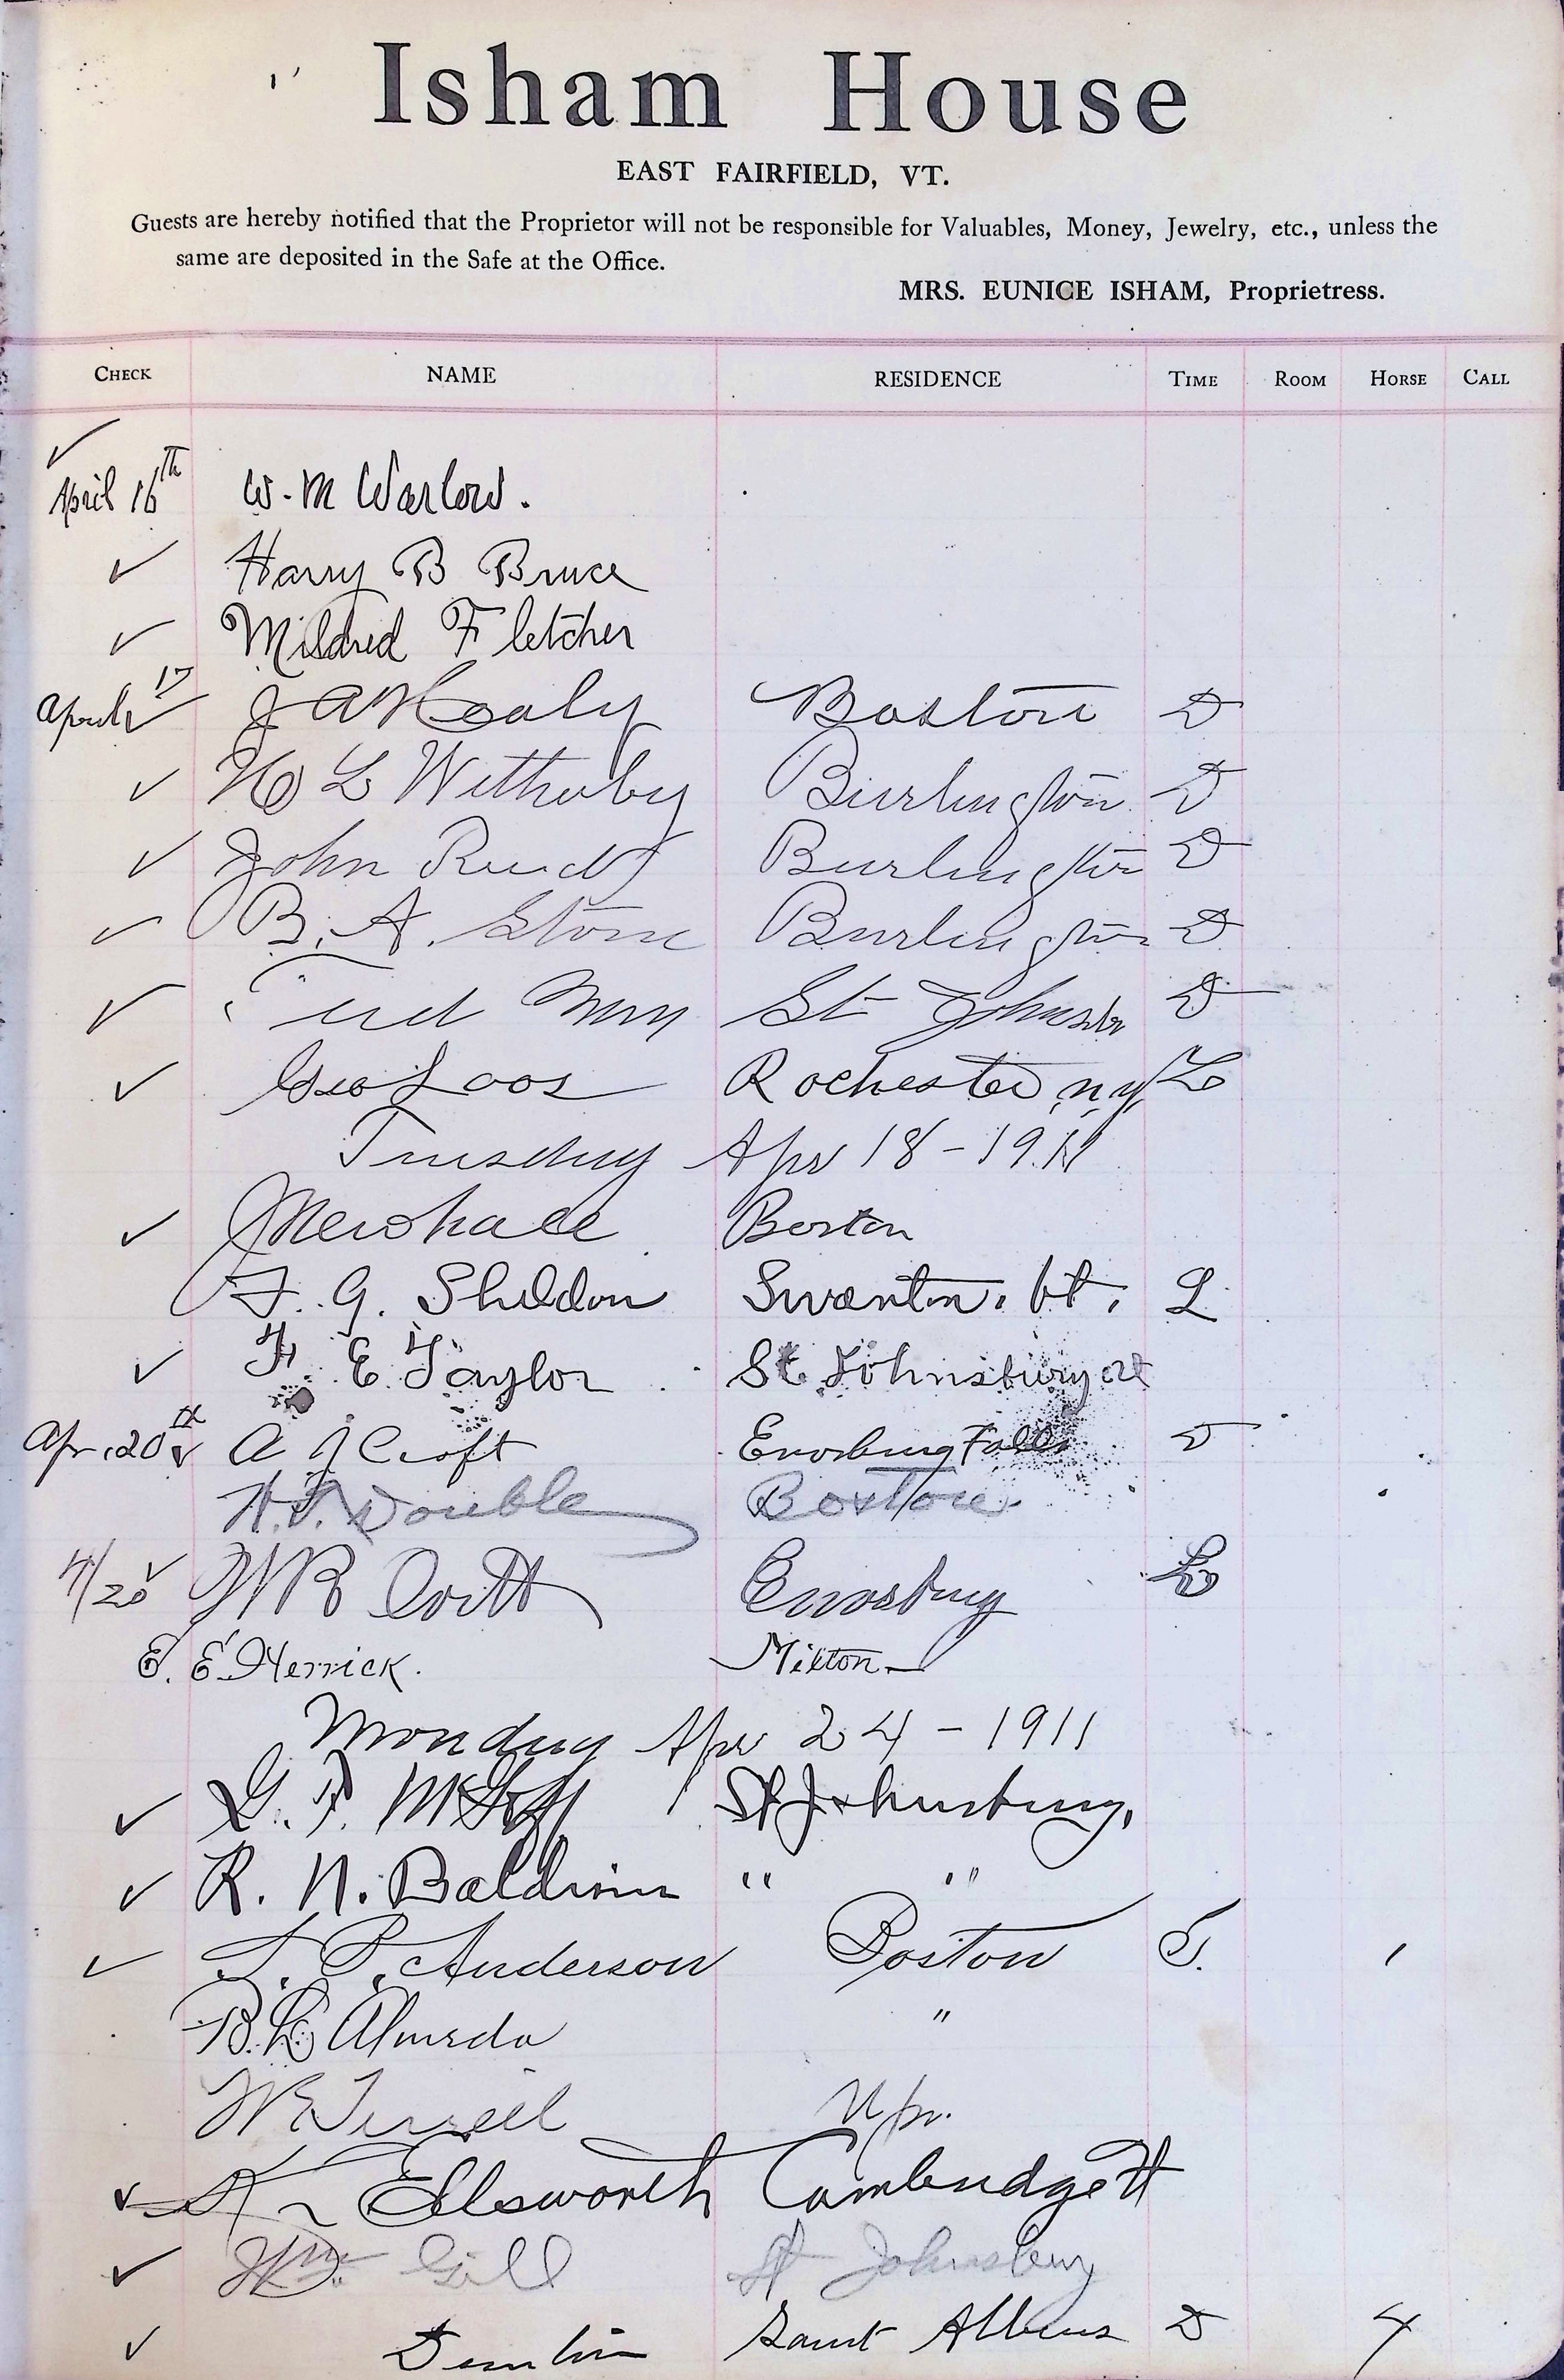 Isham House
EAST FAIRFIELD, VT.
Guests are hereby notified that the Proprietor will not be responsible for Valuables, Money, Jewelry, etc., unless the
same are deposited in the Safe at the Office.
MRS. EUNICE ISHAM, Proprietress.
CHECK NAME RESIDENCE TIME ROOM HORSE CALL
✓
April 16th W. M Warlow.
✓ Harry B Bruce
✓ Mildred Fletcher
April 17 ✓ J A Healy Boston D
✓ H L Witherby Burlington D
✓ John Burlington D
✓ B. A. Stone Burlington D
✓ St Johnsb D
✓ Geo Loos Rochester, N.Y. L
Tuesday Apr 18 - 1911
✓ J Newhall Boston
F. G. Sheldon Swanton, Vt. L
✓ F. E. Taylor St. Johnsbury Vt
Apr. 20th ✓ A J Croft Enosburg Falls D
H. Double Boston.
4/20 ✓ Enosburg L
E. E. Herrick. Milton
Monday Apr 24 - 1911
✓ G. F. St Johnsbury,
✓ R. N. Baldwin " "
✓ Anderson Boston S.
B. Almeda "
W E Terrell
✓ Ellsworth Cambridge Vt
✓ Wm Gill St Johnsbury
✓ Saint Albans D 4